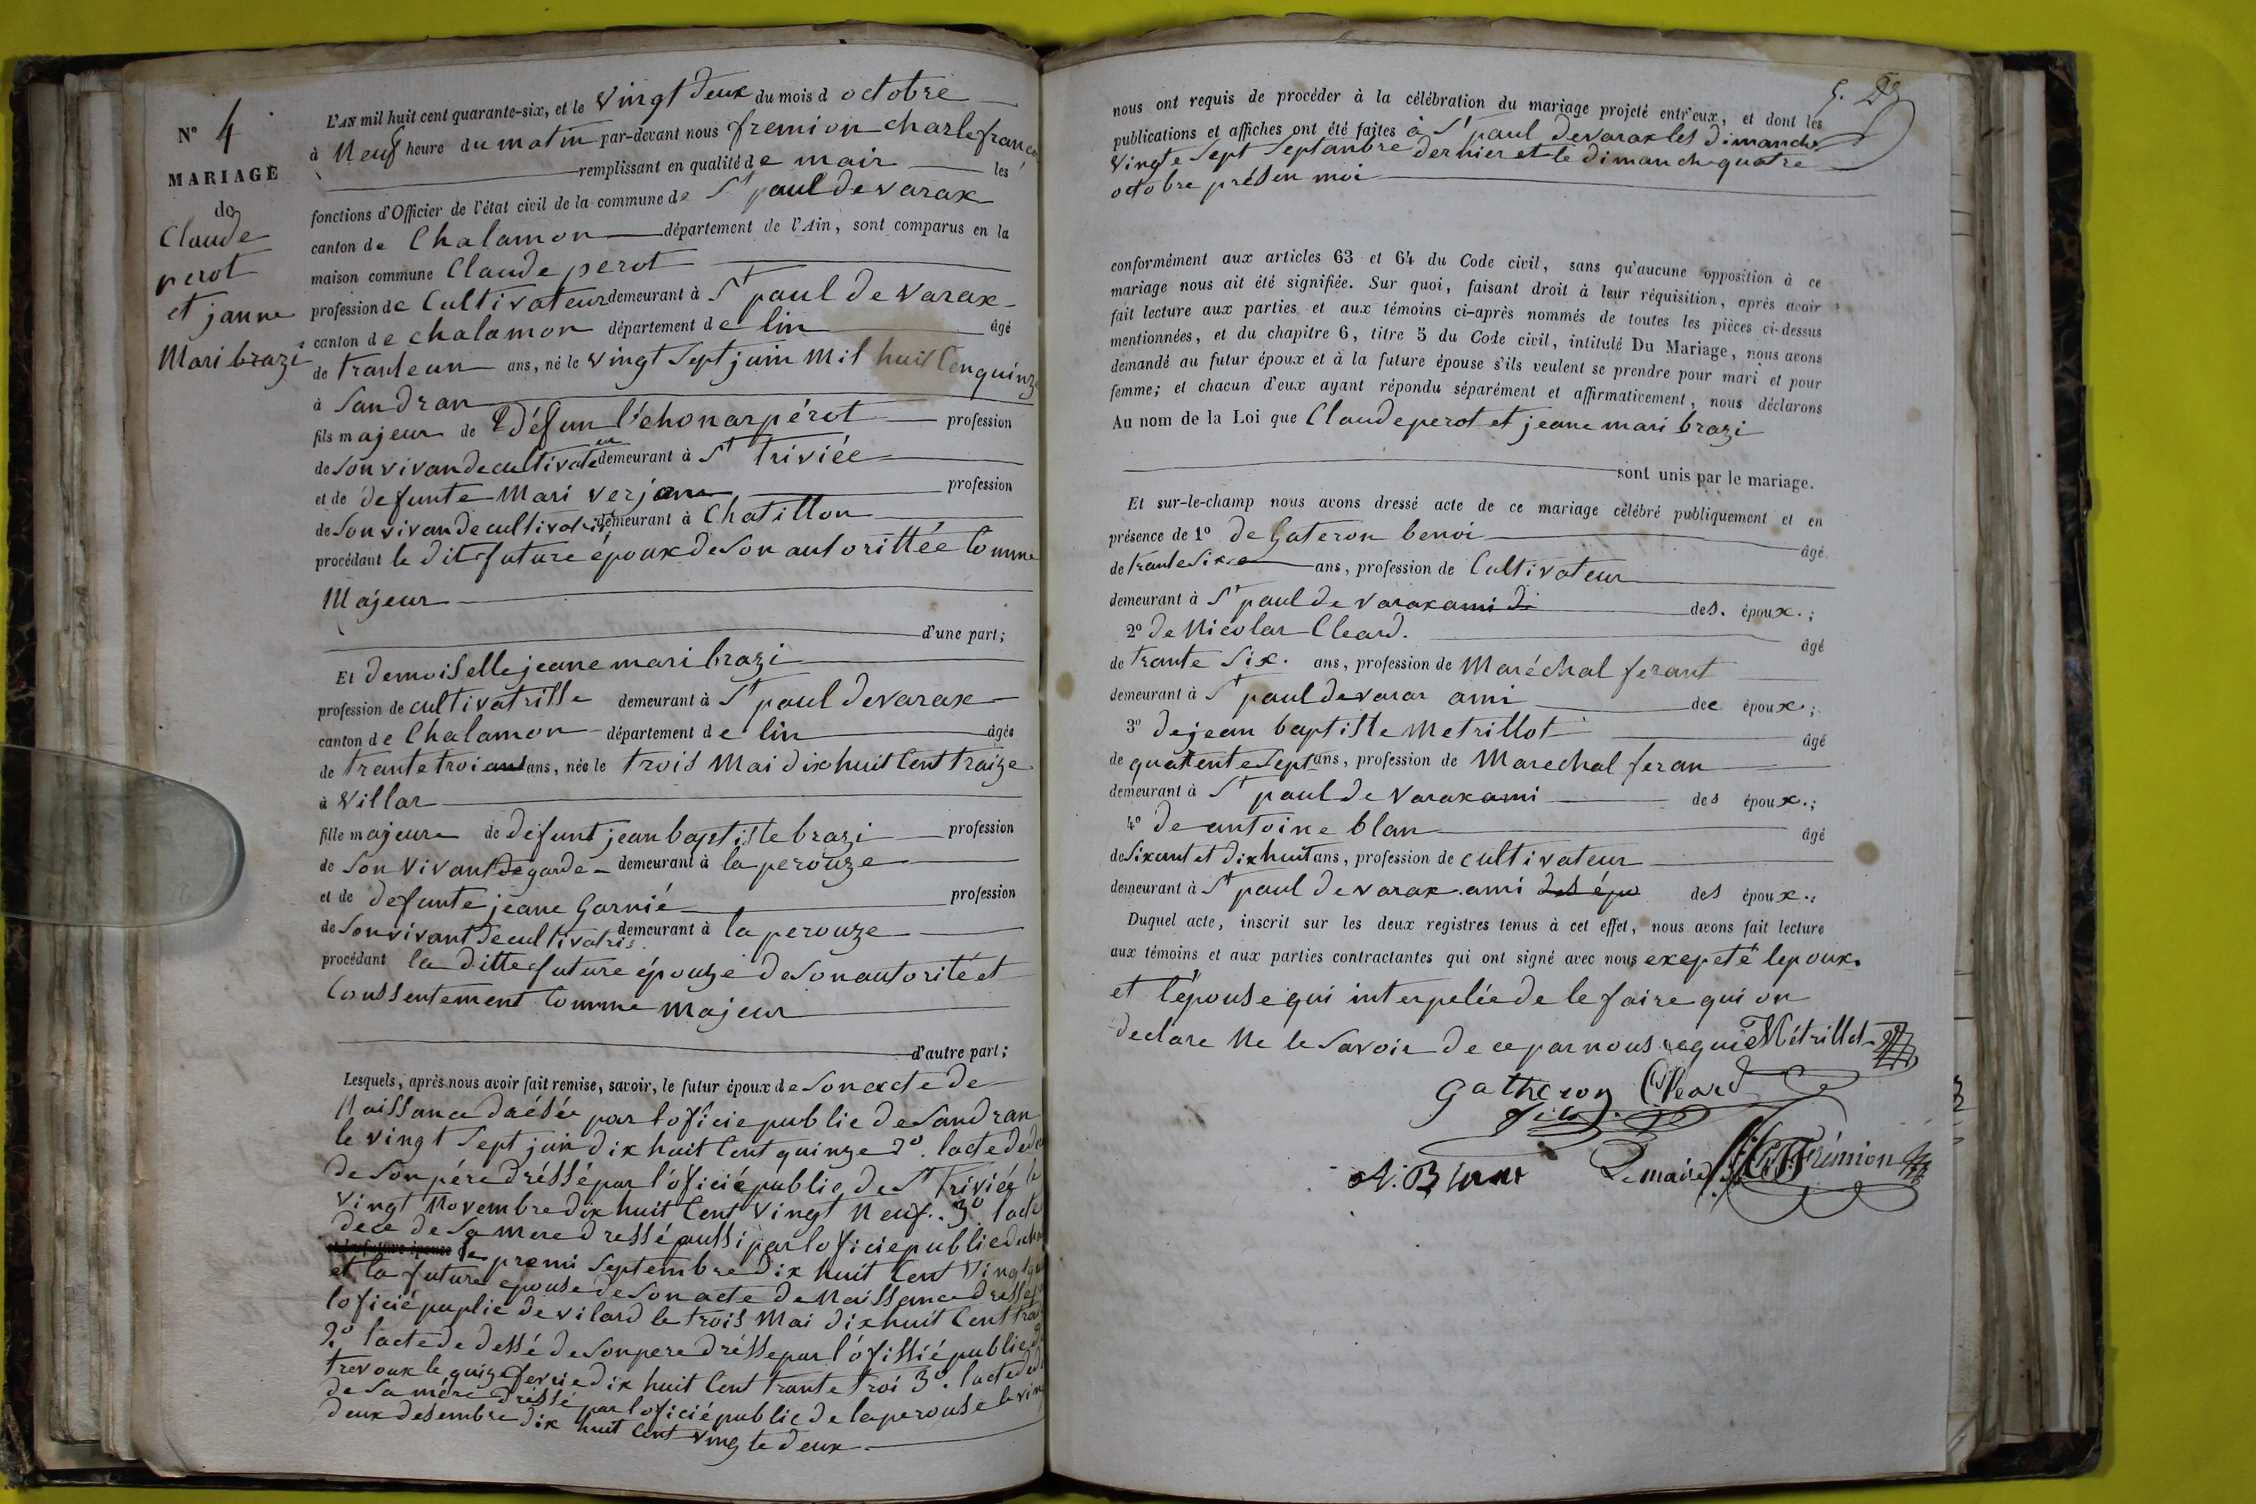 N° 4
MARIAGE
de
Claude
perot
et janne
Mari brazi
L'AN mil huit cent quarante-six, et le vingt deux du mois d octobre
à Neuf heure du matin par-devant nous fremion charle franco
remplissant en qualité de mair les
fonctions d'Officier de l'état civil de la commune de St paul de varax
canton de Chalamon département de l'Ain, sont comparus en la
maison commune Claude perot
profession de Cultivateur demeurant à St paul de varax
canton de chalamon département de lin âgé
de tranteun ans, né le vingt sept juin mil huit Cenquinze
à Sandran
fils majeur de défun léhonar pérot profession
de son vivan de cultivateur demeurant à St triviée
et de defunte Mari verjan profession
de son vivan de cultivatris demeurant à Chatillon
procédant le dit future époux de son autorittée Comme
Majeur
d'une part;
Et demoiselle jeane mari brazi
profession de cultivatrisse demeurant à St paul de varax
canton de Chalamon département de lin âgée
de trante troi ans ans, née le trois Mai dix huit Cent traize
à Villar
fille majeure de défunt jean baptiste brazi profession
de son vivant de garde demeurant à la perouze
et de defunte jeane Garnié profession
de son vivant de cultivatris demeurant à la perouze
procédant la ditte future épouze de son autorité et
Conssentement Comme majeur
d'autre part;
Lesquels, après nous avoir fait remise, savoir, le futur époux de son acte de
Naissance drésée par loficie public de Sandran
le vingt sept juin dix huit Cent quinze 2° lacte de de
de son pére dréssé par l'óficié public de St Trivié le
vingt Novembre dix huit Cent vingt Neuf. 3° lacte
dece de sa mere dressé aussi par loficie public de
le premi septembre dix huit Cent vingt
et la future epouse de son acte de Naissance dressé
loficié puplic de vilard le trois Mai dix huit Cent trai
2° lacte de dessé de son pere dréssé par l'ófissié public de
trevoux le quize fevrie dix huit Cent trante troi 3° lacte de de
de sa mére dréssé par loficié public de laperouse le vin
deux desembre dix huit Cent vingte deux
nous ont requis de procéder à la célébration du mariage projeté entr'eux, et dont les
publications et affiches ont été faites à St paul de varax les dimanche
vingte sept septanbre dernier et le dimanche quatre
octobre présen moi
conformément aux articles 63 et 64 du Code civil, sans qu'aucune opposition à ce
mariage nous ait été signifiée. Sur quoi, faisant droit à leur réquisition, après avoir
fait lecture aux parties et aux témoins ci-après nommés de toutes les pièces ci-dessus
mentionnées, et du chapitre 6, titre 5 du Code civil, intitulé Du Mariage, nous avons
demandé au futur époux et à la future épouse s'ils veulent se prendre pour mari et pour
femme; et chacun d'eux ayant répondu séparément et affirmativement, nous déclarons
Au nom de la Loi que Claude perot et jeane mari brazi
sont unis par le mariage.
Et sur-le-champ nous avons dressé acte de ce mariage célébré publiquement et en
présence de 1° de Gateron benoi âgé
de trante sixe ans, profession de Cultivateur
demeurant à St paul de varax ami di des époux;
2° de Nicolar Cleard. âgé
de trante six. ans, profession de Maréchal ferant
demeurant à St paul de varax ami dee époux;
3° de jean baptiste Metrillot âgé
de quatente sept ans, profession de Marechal feran
demeurant à St paul de varax ami des époux;
4° de antoine blan âgé
de sixant et dix huit ans, profession de cultivateur
demeurant à St paul de varax ami des épo des époux.
Duquel acte, inscrit sur les deux registres tenus à cet effet, nous avons fait lecture
aux témoins et aux parties contractantes qui ont signé avec nous exepeté lepoux
et l'épouse qui interpelée de le faire qui on
declare Ne le savoir de ce par nous requie Métrillot
Gatheron Cleard
fils
A. Blanc Le maire Frémion